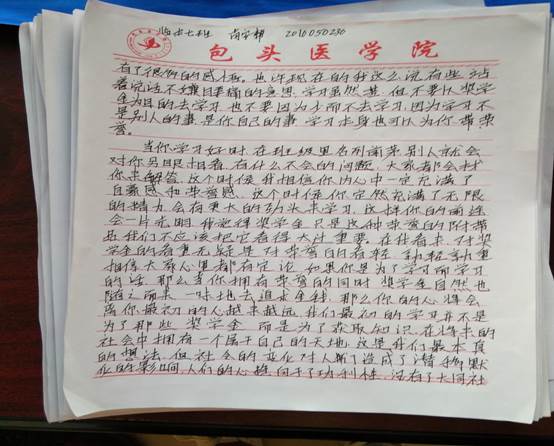 临床七班 2010050230
包头医学院
有了很深的感悟。也许现在的我这么说有些站
着说话不腰疼的意思,学习虽然苦,但不要以奖学
金为目的去学习,也不要因为少而不去学习,因为学习不
是别人的事,是你自己的事,学习本身也可以为你带荣
誉。
当你学习好时,在班级里名列前茅,别人就会
对你另眼相看,有什么不会的问题,大家都会找
你来解答,这个时候,我相信你内心中一定充满了
自豪感和荣誉感,这个时候你定然充满了无限
的精力,会有更大的劲头来学习,这样你的前途
会一片光明,你获得奖学金只是这种荣誉的附带
品,我们不应该把它看得太过重要。在我看来,对奖
学金的看重无疑是对荣誉的看轻,孰轻孰重
相信大家心里都有定论,如果你是为了学习而学习
的话,那么当你拥有荣誉的同时,奖学金自然也
随之而来,一味地去追求金钱,那么你的心将会
离你最初的心越来越远,我们最初的学习并不是
为了那些奖学金,而是为了获取知识,在将来的
社会中拥有一个属于自己的天地,这是我们最本真
的想法,但社会的变化对人们造成了潜移默
化的影响,人们的心趋向于了功利性,没有了大同社